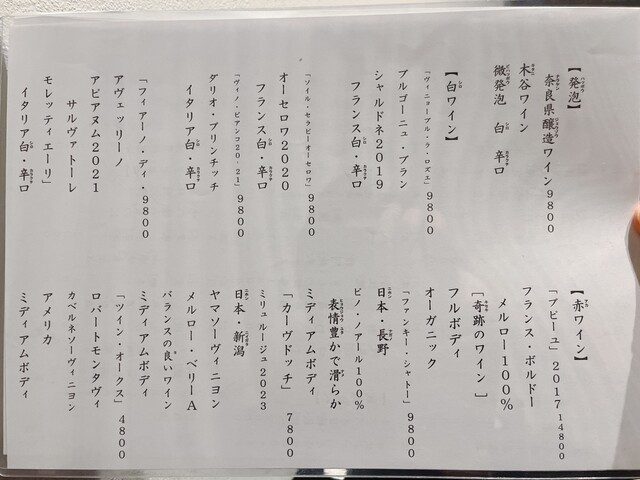 【発泡】
奈良県醸造ワイン9800
木谷ワイン
微発泡 白 辛口
【白ワイン】
「ヴィニョーブル・ラ・ロズエ」9800
ブルゴーニュ・ブラン
シャルドネ2019
フランス白・辛口
「ソイル・セラピーオーセロワ」9800
オーセロワ2020
フランス白・辛口
「ヴィノ・ビアンコ20・21」9800
ダリオ・プリンチッチ
イタリア白・辛口
「フィアーノ・ディ・9800
アヴェッリーノ
アピアヌム2021
サルヴァトーレ
モレッティエーリ」
イタリア白・辛口
【赤ワイン】
「プピーユ」2017 14800
フランス・ボルドー
メルロー100%
[奇跡のワイン]
フルボディ
オーガニック
「ファンキー・シャトー」9800
日本・長野
ピノ・ノアール100%
表情豊かで滑らか
ミディアムボディ
「カーヴドッチ」7800
ミリュルージュ2023
日本・新潟
ヤマソーヴィニヨン
メルロー・ベリーA
バランスの良いワイン
ミディアムボディ
「ツイン・オークス」4800
ロバートモンダヴィ
カベルネソーヴィニヨン
アメリカ
ミディアムボディ